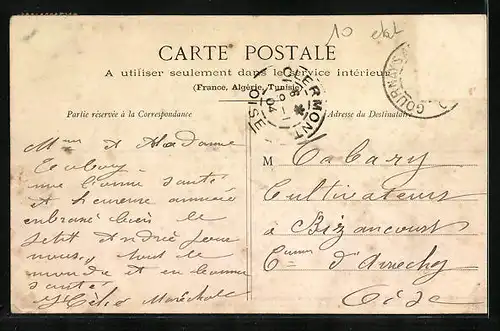 10
CARTE POSTALE
A utiliser seulement dans le service intérieur
(France, Algérie, Tunisie)
CLERMONT
OISE
04
GOURNAY
Partie réservée à la Correspondance
Adresse du Destinataire
et Madame
une bonne santé
et heureuse année
embrassé bien le
petit André pour
nous, tout le
monde et en bonne
santé
M Cabary
Cultivateurs
à Bizancourt
d'
Oise